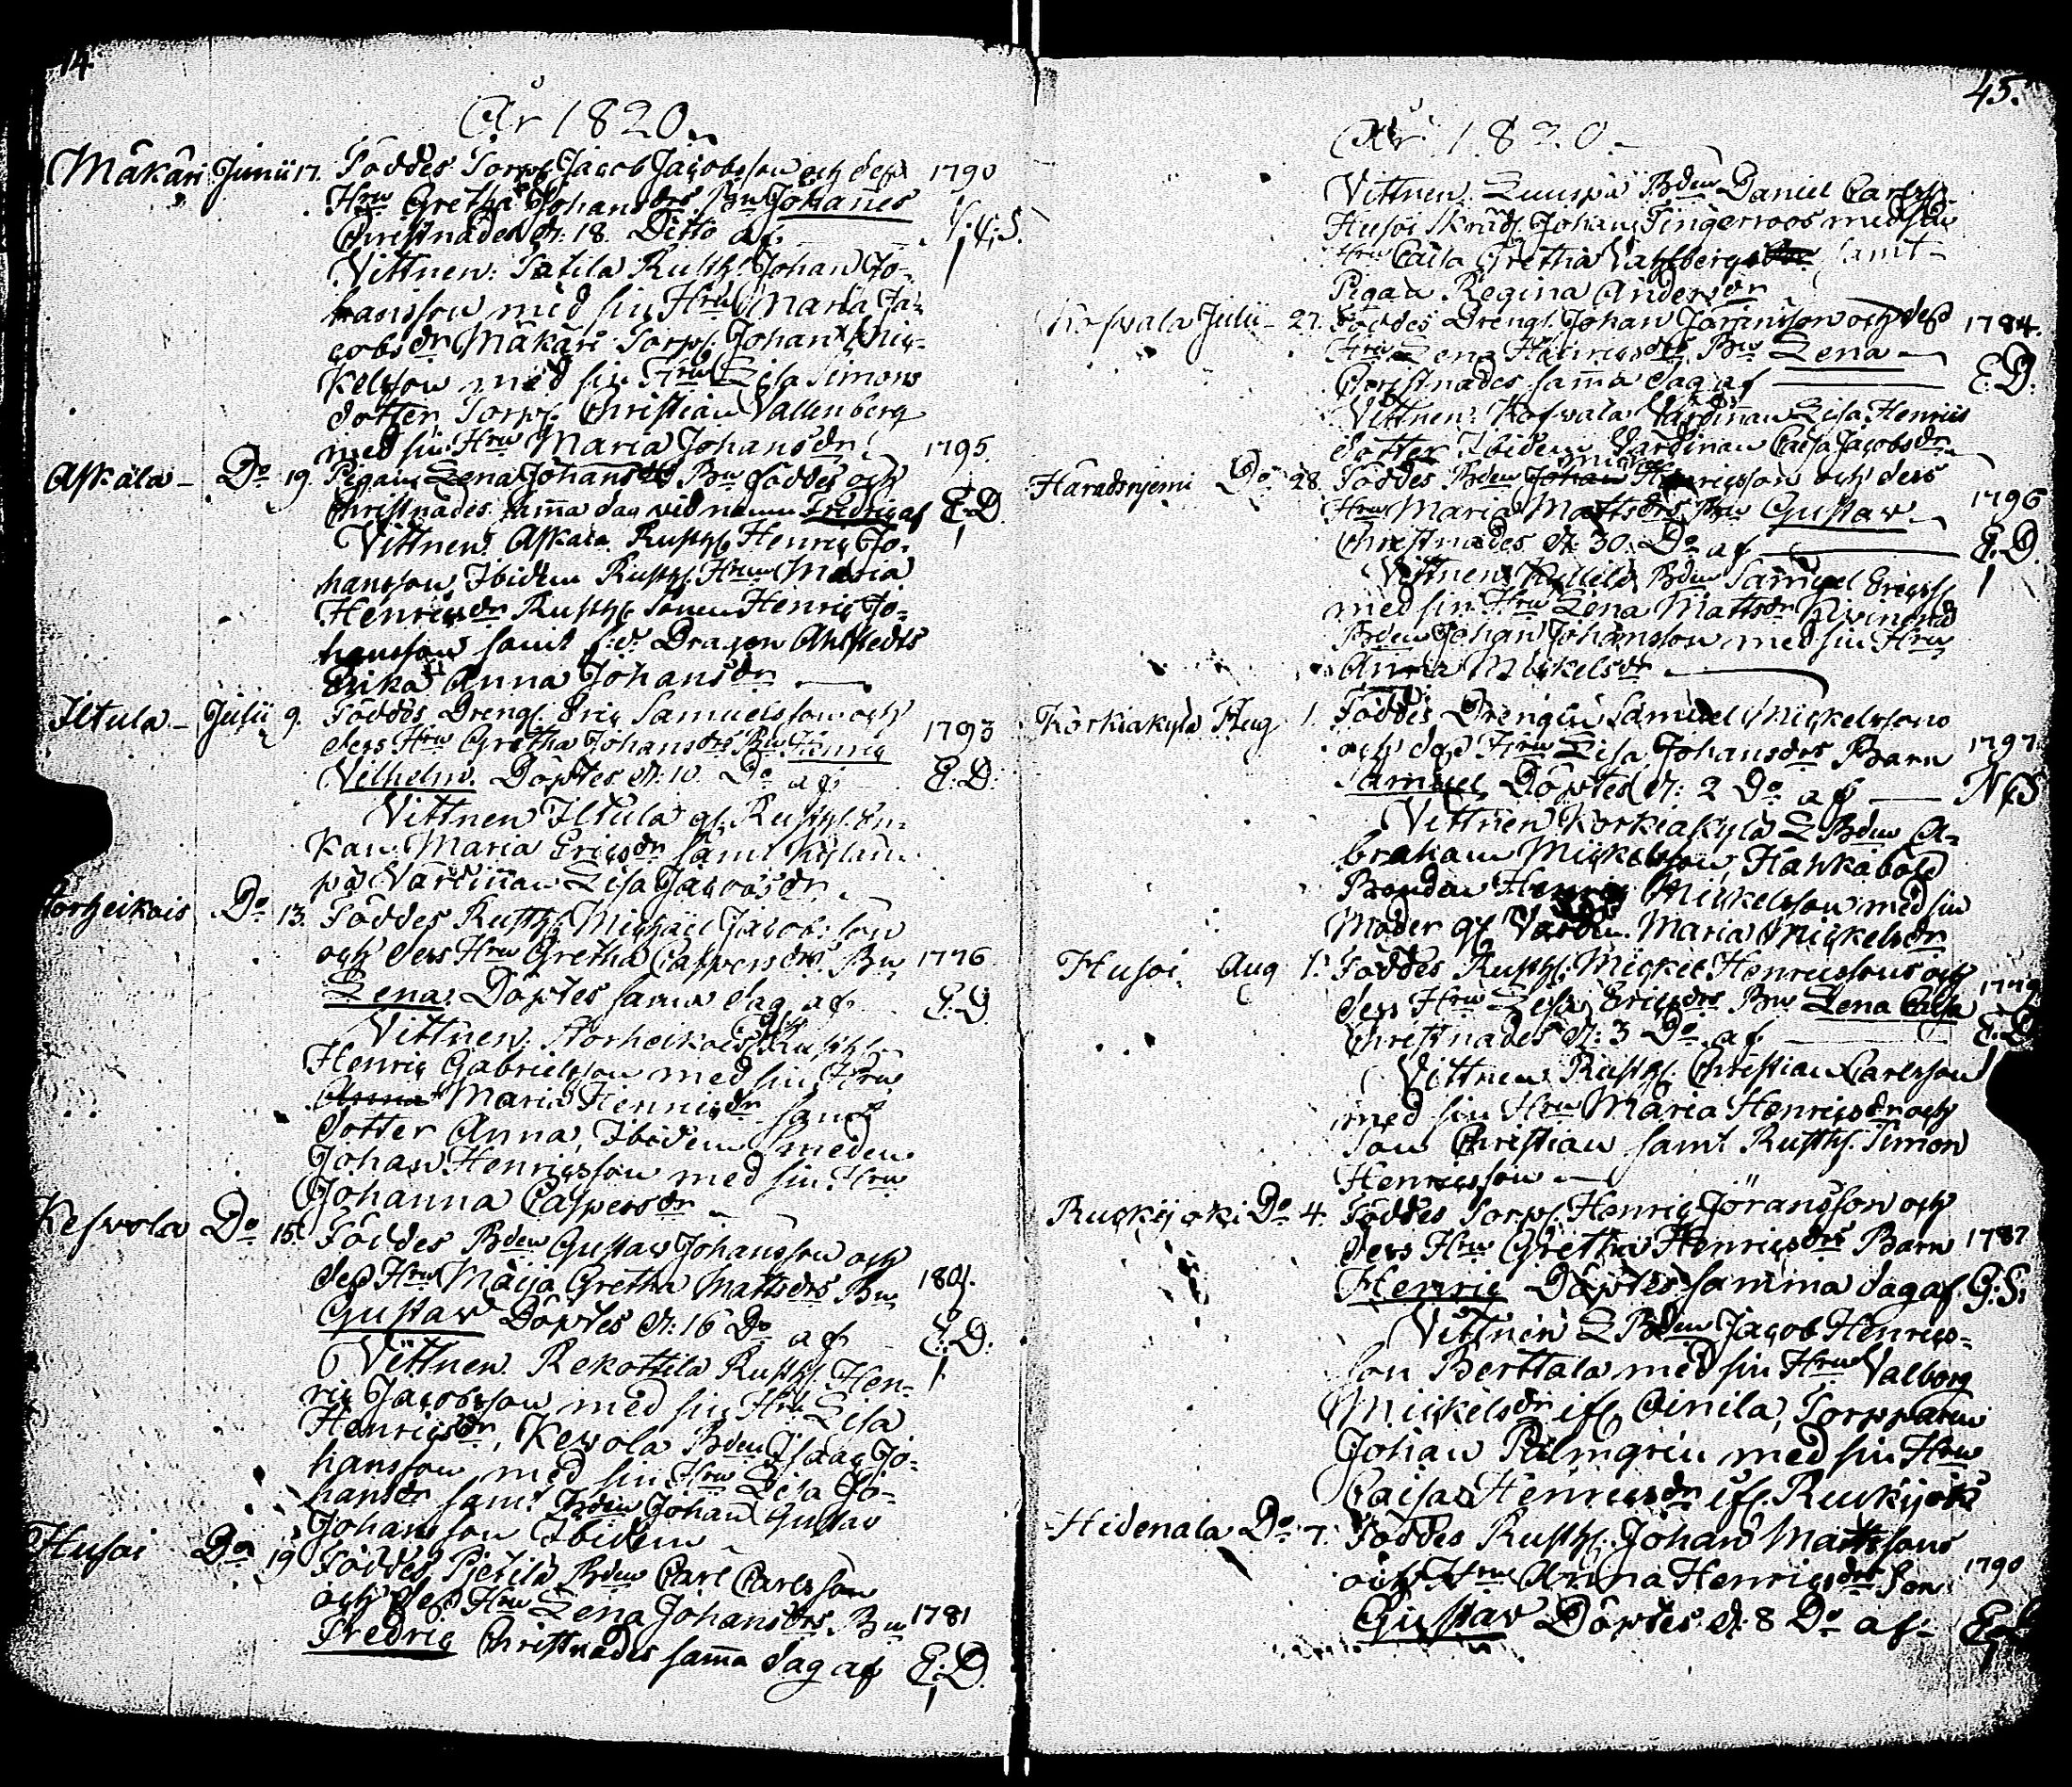 14.
År 1820.
Mäkäri Junii 17. Föddes Torp. Jacob Jacobsson och dess 1790
Hru Gretha Johansdrs Bn Johanes
Christnades d. 18. Ditto af
Vittnen: Rusth. Johan Jo-
hansson med sin Hru Maria Ja-
cobsdr Mäkäri Torp. Johan Mic-
kelsson med sin Hru Lisa Simons
dotter Torp. Christian Vallenberg
med sin Hru Maria Johansdr. 1795.
Askala Do 19. Pigans Lena Johansdrs Bn föddes och
Christnades samma dag vid namn Fredric af E.D.
Vittnen: Askala Rusth. Henric Jo-
hansson, Ibidem Rusth. Hrun Maria
Henricsdr Rusth. Sonen Henric Jo-
hansson samt Dragon Ahlstedts
Enka Anna Johansdr
Iltula Julii 9. Föddes Dreng. Eric Samuelsson och
dess Hru Gretha Johansdrs Bn Henric 1793
Vilhelm. Döptes d. 10. Do af E.D.
Vittnen Iltula gl. Rusth. En-
kan Maria Ericsdr samt Kylän-
pä Värdinnan Lisa Jacobsdr.
Do 13. Föddes Rusth. Michael Jacobsson
och dess Hru Gretha Caspersdrs Bn 1776
Lena. Döptes samma dag af E.D.
Vittnen: Rusth.
Henric Gabrielsson med sin Hru
Maria Henricsdr samt
dotter Anna, Ibidem Smeden
Johan Henricsson med sin Hru
Johanna Caspersdr
Keswola Do 15. Föddes Bden Gustav Johansson och
dess Hru Maija Gretha Mattsdrs Bn 1801.
Gustav Döptes d. 16 Do af E.D.
Vittnen. Rekottila Rusth. Hen-
ric Jacobsson med sin Hru Lisa
Henricsdr, Kewola Bden Isaac Jo-
hansson med sin Hru Lisa Jo-
hansdr samt Bden Johan Gustav
Johansson Ibidem
Husoi Do 19 Föddes Pietilä Bden Carl Carlsson
och dess Hru Lena Johansdrs Bn 1781
Fredric Christnades samma dag af E.D.
45.
År 1820.
Vittnen. Bden Daniel Carlss.
Husoi Skräd. Johan Tingerroos med sin
Hru Caisa Gretha Vahlberg samt
Pigan Regina Andersdr
Julii 27. Föddes Dreng. Johan Joransson och dess 1784.
Hru Lena Henricsdrs Bn Lena
Christnades samma dag af E.D.
Vittnen: Kofwala Värdinnan Lisa Henrics
dotter Ibidem Värdinnan Caisa Jacobsdr
Haradsnjemi Do 28. Föddes Bden Henricsson och dess
Hru Maria Mattsdrs Bn Gustav 1796
Christnades d. 30. Do af E.D.
Vittnen Bden Samuel Ericss.
med sin Hru Lena Mattsdr
Bden Johan Johansson med sin Hru
Anna Mickelsdr
Korkiakylä Aug 1. Föddes Drengen Samuel Mickelssons
och dess Hru Lisa Johansdrs Barn 1797
Samuel Döptes d: 2 Do af
Vittnen Korkiakylä L Bden A-
braham Mickelsson, Hankaböle
Bonden Henric Mickelsson med sin
Moder gl Värdin. Maria Mickelsdr
Husoi Aug 1. Föddes Rusth. Mickel Henricssons och
dess Hru Lisa Ericsdrs Bn Lena Caisa 1779
Christnades d: 3 Do af E.D.
Vittnen Rusth. Christian Carlsson
med sin Hru Maria Henricsdr och
Son Christian samt Rusth. Simon
Henricsson
Ruckijoki Do 4. Föddes Torp. Henric Jöransson och
dess Hru Gretha Henricsdrs Barn 1787
Henric Döptes samma dag af G.S.
Vittnen L Bden Jacob Henrics-
son Berttala med sin Hru Valborg
Mickelsdr if. Oinila, Torpparen
Johan Palmgrén med sin Hru
Caisa Henricsdr if. Ruckijoki
Hidenala Do 7. Föddes Rusth. Johan Mattssons
och Hru Anna Henricsdrs Son 1790
Gustav Döptes d. 8 Do af